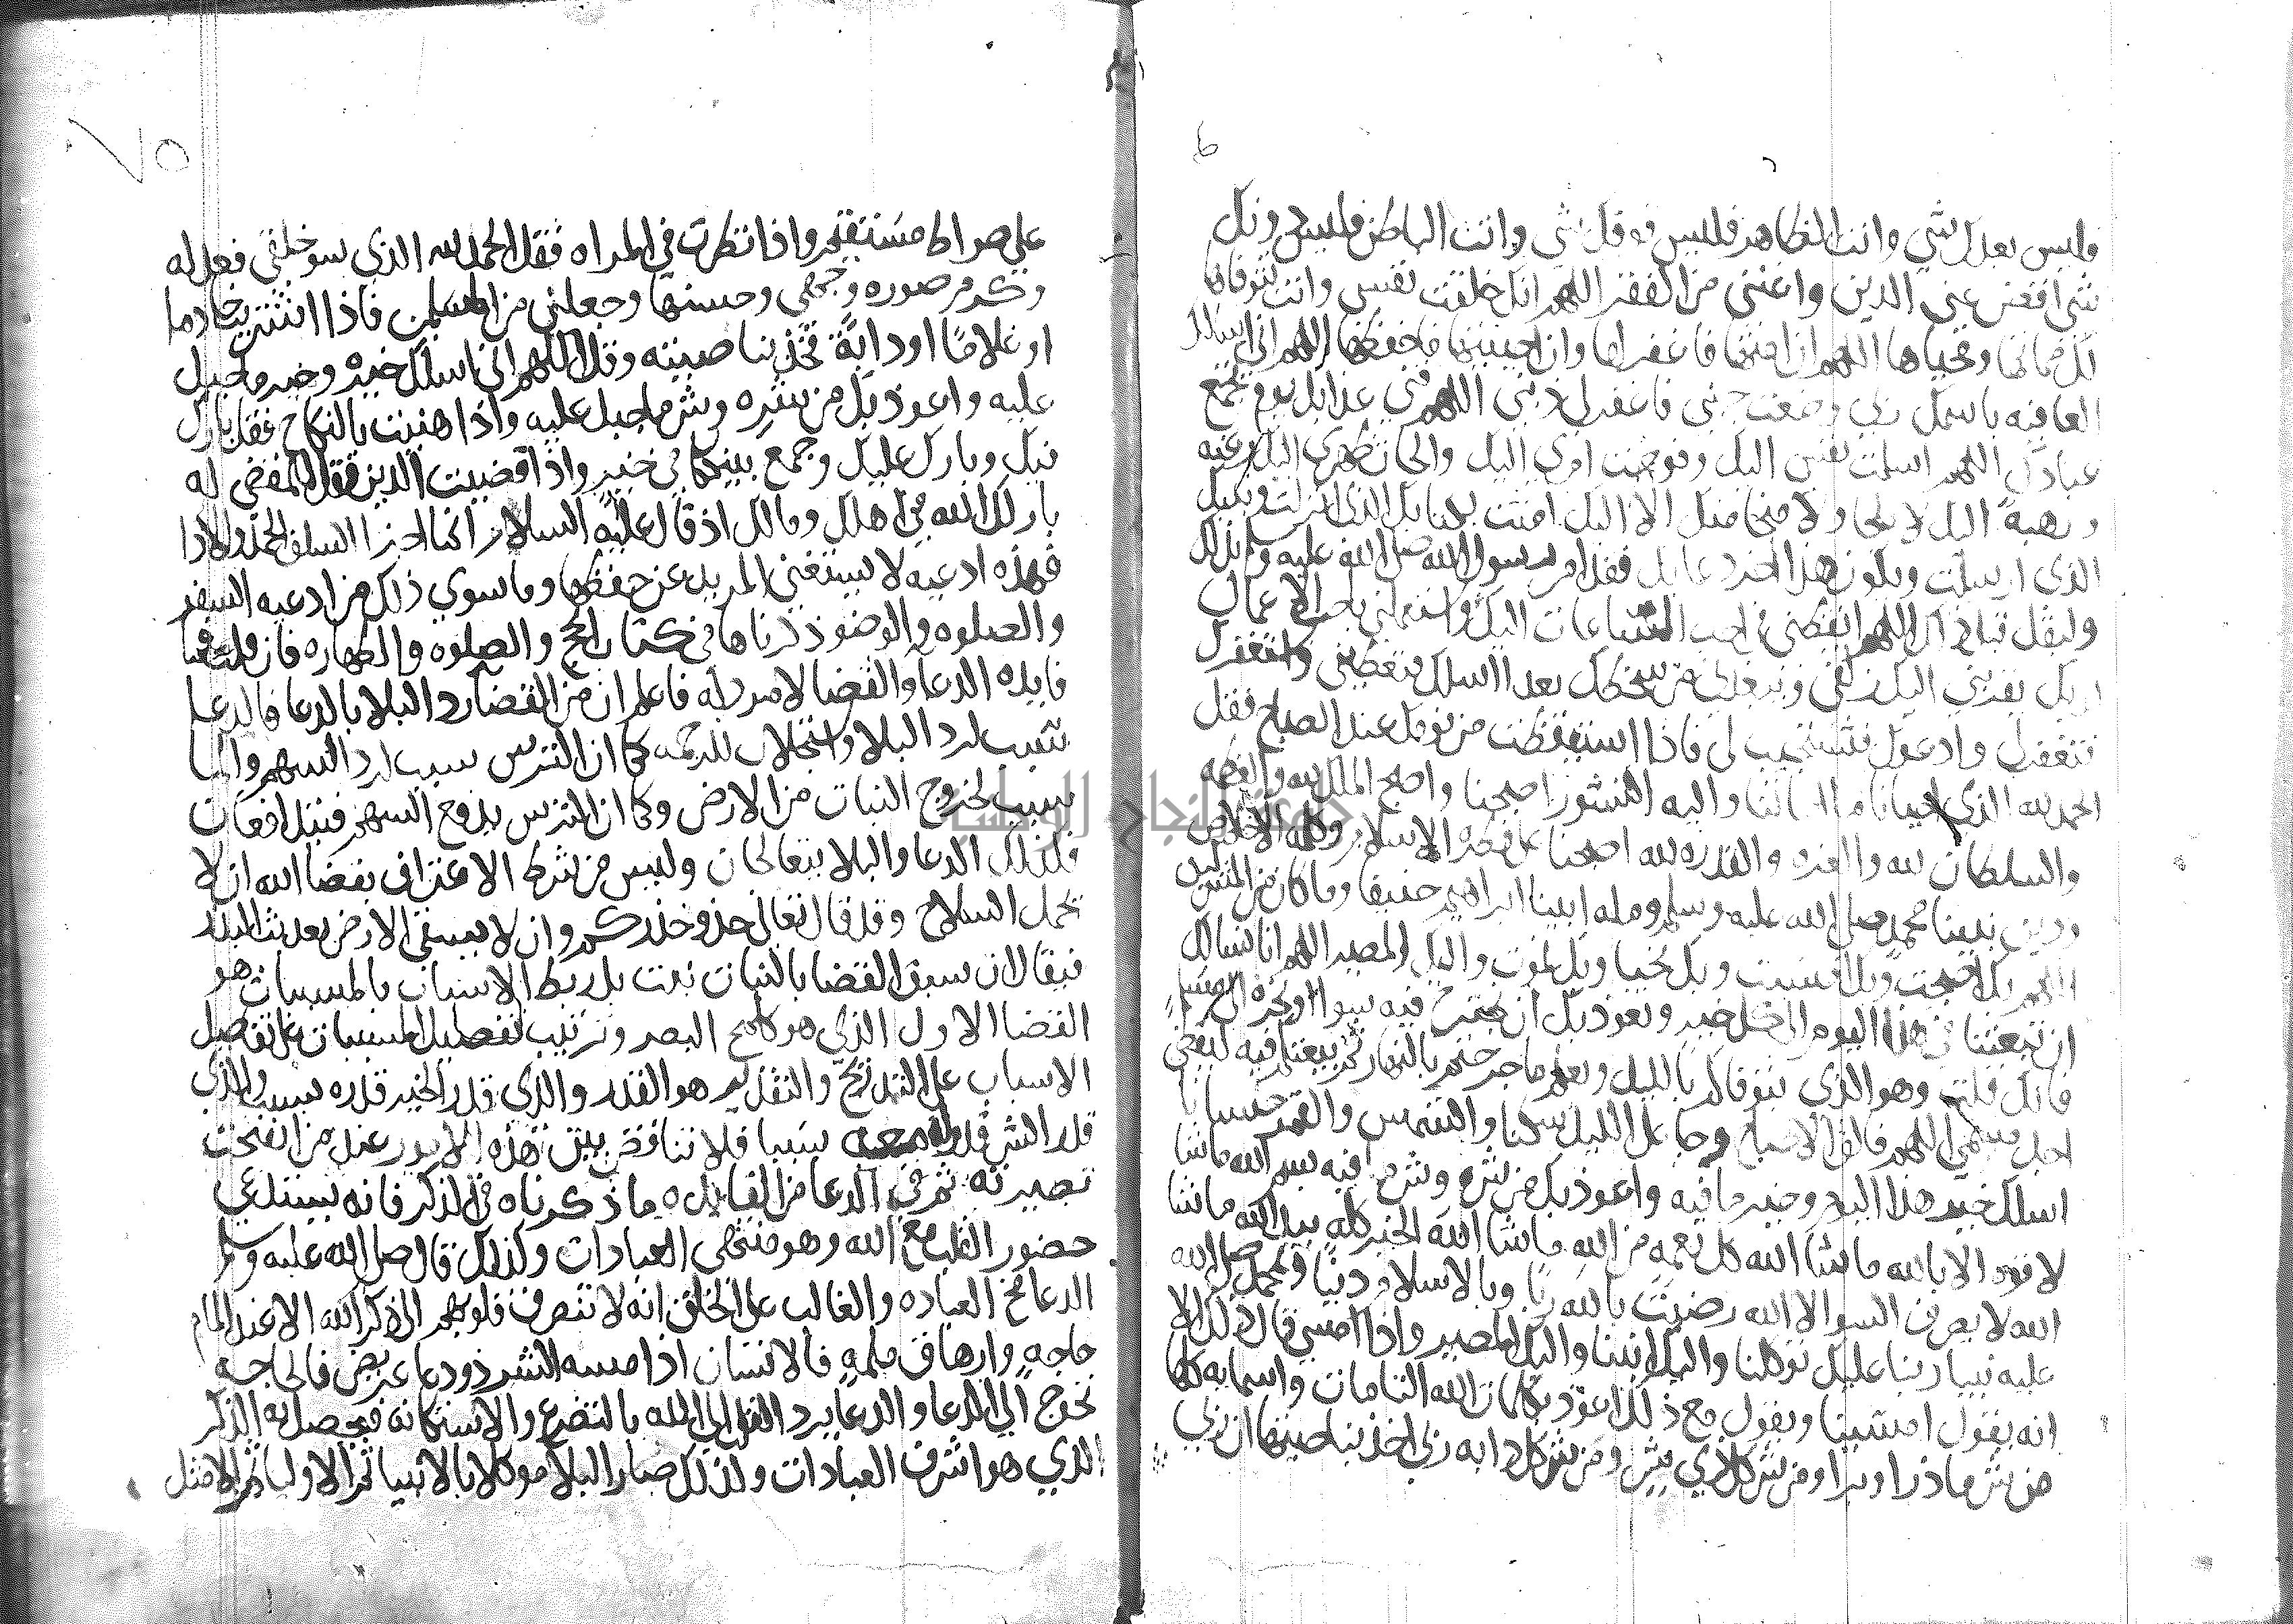 فليس بعدك شي وانت الظاهر فليس فوقك شي وانت الباطن فليس دونك
شي اقض عني الدين واغنني من الفقر اللهم انك خلقت نفسي وانت تتوفاها
لك مماتها ومحياها اللهم ان امتها فاغفر لها وان احييتها فاحفظها اللهم اني اسلك
العافيه باسمك ربي وضعت جنبي فاغفر لي ذنبي اللهم قني عذابك يوم تجمع
عبادك اللهم اسلمت نفسي اليك وفوضت امري اليك والجات ظهري اليك رغبه
ورهبة اليك لا ملجا ولا منجا منك الا اليك امنت بكتابك الذي انزلت ونبيك
الذي ارسلت ويكون هذا اخر دعايك فقد امر رسول الله صلى الله عليه وسلم بذلك
وليقل قبل ذلك اللهم ايقظني في احب الساعات اليك واستعملني باحب الاعمال
اليك تقربني اليك زلفى وتبعدني من سخطك بعدا اسلك فتعطيني واستغفرك
فتغفر لي وادعوك فتستجيب لي فاذا استيقظت من نومك عند الصباح فقل
الحمد لله الذي احيانا بعد ما اماتنا واليه النشور اصبحنا واصبح الملك لله والعظمه
والسلطان لله والعزه والقدره لله اصبحنا على فطرة الاسلام وكلمه الاخلاص
ودين نبينا محمد صلى الله عليه وسلم ومله ابينا ابراهيم حنيفا وما كان من المشركين
اللهم بك اصبحت وبك امسيت وبك نحيا وبك نموت واليك المصير اللهم انا نسالك
ان تبعثنا في هذا اليوم الى كل خير ونعوذ بك ان نجترح فيه سوا او نجره الى مسلم
فانك قلت وهو الذي يتوفاكم بالليل ويعلم ما جرحتم بالنهار ثم يبعثكم فيه ليقضي
اجل مسمى اللهم فالق الاصباح وجاعل الليل سكنا والشمس والقمر حسبانا
اسلك خير هذا اليوم وخير ما فيه واعوذ بك من شره وشر ما فيه بسم الله ما شا
لا قوه الا بالله ما شا الله كل نعمه من الله ما شا الله الخير كله بيد الله ما شا
الله لا يصرف السو الا الله رضيت بالله ربا وبالاسلام دينا وبمحمد صلى الله
عليه نبيا ربنا عليك توكلنا واليك انبنا واليك المصير واذا امسى قال ذلك الا
انه يقول امسينا ويقول مع ذلك اعوذ بكلمات الله التامات واسمايه كلها
من شر ما ذرا وبرا ومن شر كل ذي شر ومن شر كل دابه ربي اخذ بناصيتها ان ربي
٧٥
على صراط مستقيم واذا نظرت في المراه فقل الحمد لله الذي سوى خلقي فعدله
وكرم صوره وجهي وحسنها وجعلني من المسلمين فاذا اشتريت خادما
او غلامًا او دابة فخذ بناصيته وقل اللهم اني اسلك خيره وخير ما جبل
عليه واعوذ بك من شره وشر ما جبل عليه واذا هنيت بالنكاح فقل بارك
فيك وبارك عليك وجمع بينكما في خير واذا قضيت الدين فقل للمقضي له
بارك لك الله في اهلك ومالك اذ قال عليه السلام انما جزا السلف الحمد والادا
فهذه ادعيه لا يستغني المريد عن حفظها وما سوى ذلك من ادعيه السفر
والصلوه والوضو ذكرناها في كتاب الحج والصلوه والطهاره فان قلت فما
فايده الدعا والقضا لا مرد له فاعلم ان من القضا رد البلا بالدعا فالدعا
سبب لرد البلا واستجلاب للرحمه كما ان الترس سبب لرد السهم والما
سبب لخروج النبات من الارض وكما ان الترس يدفع السهم فيتدافعان
فكذلك الدعا والبلا يتعالجان وليس من شرط الاعتراف بقضا الله ان لا
يحمل السلاح وقد قال تعالى خذو حذركم وان لا يسقى الارض بعد بث البذر
فيقال ان سبق القضا بالنبات نبت بل ربط الاسباب بالمسببات هو
القضا الاول الذي هو كلمح البصر وترتيب تفصيل المسببات على تفاصيل
الاسباب على التدريج والتقدير هو القدر والذي قدر الخير قدره بسبب والذي
قدر الشر قدر لدفعه سببا فلا تناقض بين هذه الامور عند من انفتحت
بصيرته ثم في الدعا من الفايده ما ذكرناه في الذكر فانه يستدعي
حضور القلب مع الله وهو منتهى العبادات ولذلك قال صلى الله عليه وسلم
الدعا مخ العباده والغالب على الخلق انه لا تنصرف قلوبهم الى ذكر الله الا عند المام
حاجه وارهاق ملمه فالانسان اذا مسه الشر ذو دعا عريض فالحاجه
تحوج الى الدعا والدعا يرد القلب الى الله بالتضرع والاستكانه فيحصل به الذكر
الذي هو اشرف العبادات ولذلك صار البلا موكلا بالانبيا ثم الاوليا ثم الامثل